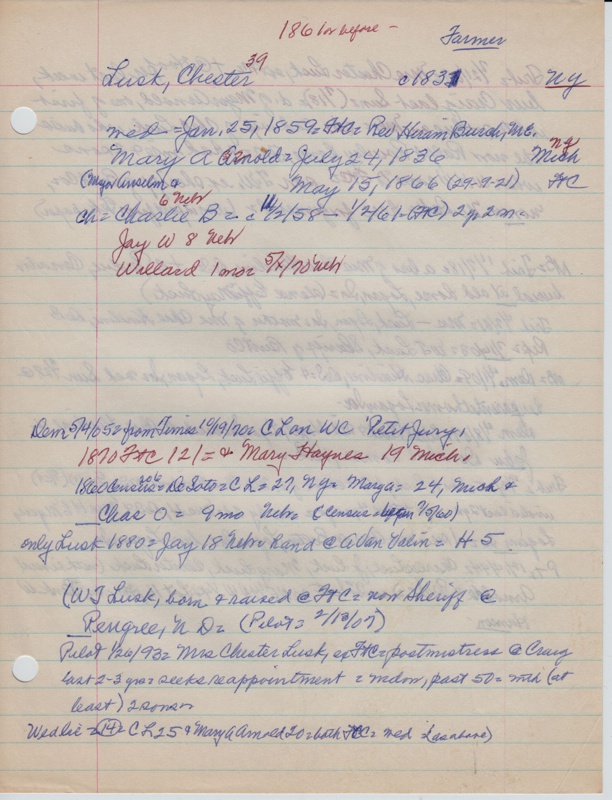 1861 or before -
Farmer
Lusk, Chester 39 c1831 NY
med = Jan. 25, 1859 = FtC = Rev Hiram Burch, M.E. NY
Mary A Arnold = July 24, 1836 Mich
(Major Anselm & May 15, 1866 (29-9-21) FtC
6 Nebr
ch = Charlie B = c 11/2/58 - 1/2/61 = (FtC) 2y 2m =
Jay W 8 Nebr
Willard 1 mo = 5/x/70 Nebr
Dem 5/4/65 = from Times 10/19/70 = C L on WC Petet Jury,
1870 FtC 121 = & Mary Haynes 19 Mich.
1860 Census = 306 De Soto = C L = 27, NY = Mary A = 24, Mich &
Chas O = 9 mo Nebr (Census = began 7/5/60)
only Lusk 1880 = Jay 18 Nebr hand @ A Van Valin = H 5
(WJ Lusk, born & raised @ FtC = now Sheriff @
Pengree, N D = (Pilot = 2/13/07)
Pilot 1/26/93 = Mrs Chester Lusk, of FtC = postmistress @ Craig
last 2-3 yrs = seeks reappointment = widow, past 50 = with (at
least) 2 sons
Wed lic = 14 = C L 25 & Mary A Arnold 20 = both FtC = med (as above)